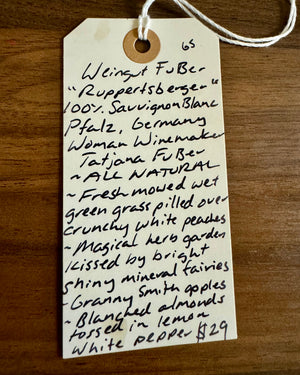 65
Weingut FuBer
"Ruppertsberger"
100% Sauvignon Blanc
Pfalz, Germany
Woman Winemaker
Tatjana FuBer
~ ALL NATURAL
~ Fresh mowed wet
green grass pilled over
crunchy white peaches
~ Magical herb garden
kissed by bright
shiny mineral fairies
~ Granny Smith apples
~ Blanched almonds
tossed in lemon
white pepper $29